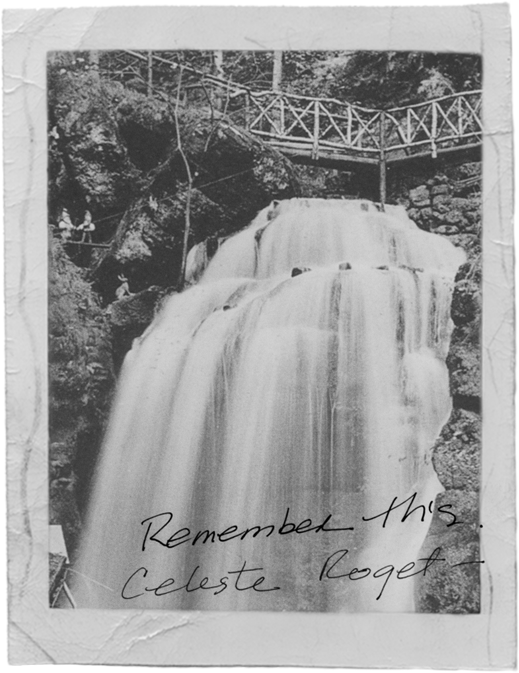 Remember this.
Celeste Roget